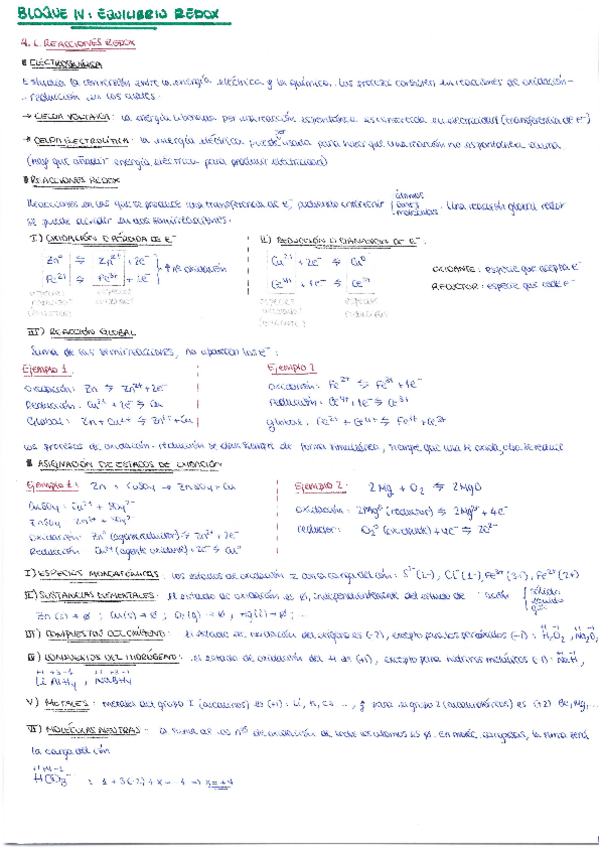 BLOQUE IV: EQUILIBRIO REDOX
4.1. REACCIONES REDOX
ELECTROQUÍMICA
Estudia la conversión entre la energía eléctrica y la química. Los procesos consisten en reacciones de oxidación-
-reducción en los cuales:
→ CELDA VOLTAICA: la energía liberada por una reacción espontánea es convertida en electricidad (transferencia de e⁻)
→ CELDA ELECTROLÍTICA: la energía eléctrica puede ser usada para hacer que una reacción no espontánea ocurra
(hay que añadir energía eléctrica para producir electricidad)
REACCIONES REDOX
Reacciones en las que se produce una transferencia de e⁻, pudiendo intervenir átomos iones moléculas. Una reacción global redox
se puede dividir en dos semirreacciones.
I) OXIDACIÓN O PÉRDIDA DE e⁻
Zn⁰ ⇋ Zn²⁺ + 2e⁻
Fe²⁺ ⇋ Fe³⁺ + 1e⁻
↑ nº oxidación
II) REDUCCIÓN O GANANCIA DE e⁻
Cu²⁺ + 2e⁻ ⇋ Cu⁰
Ce⁴⁺ + 1e⁻ ⇋ Ce³⁺
OXIDANTE: especie que acepta e⁻
REDUCTOR: especie que cede e⁻
III) REACCIÓN GLOBAL
Suma de las semirreacciones, no aparecen los e⁻:
Ejemplo 1
Oxidación: Zn ⇋ Zn²⁺ + 2e⁻
Reducción: Cu²⁺ + 2e⁻ ⇋ Cu
Global: Zn + Cu²⁺ ⇋ Zn²⁺ + Cu
Ejemplo 2
Oxidación: Fe²⁺ ⇋ Fe³⁺ + 1e⁻
Reducción: Ce⁴⁺ + 1e⁻ ⇋ Ce³⁺
global: Fe²⁺ + Ce⁴⁺ ⇋ Fe³⁺ + Ce³⁺
Los procesos de oxidación-reducción se dan siempre de forma simultánea, siempre que una se oxida, otra se reduce
ASIGNACIÓN DE ESTADOS DE OXIDACIÓN
Ejemplo 1: Zn + CuSO₄ → ZnSO₄ + Cu
CuSO₄: Cu²⁺ + SO₄²⁻
ZnSO₄ Zn²⁺ + SO₄²⁻
Oxidación: Zn⁰ (agente reductor) ⇋ Zn²⁺ + 2e⁻
Reducción: Cu²⁺ (agente oxidante) + 2e⁻ ⇋ Cu⁰
Ejemplo 2: 2Mg + O₂ ⇋ 2MgO
oxidación: 2Mg⁰ (reductor) ⇋ 2Mg²⁺ + 4e⁻
reducción: O₂⁰ (oxidante) + 4e⁻ ⇋ 2O²⁻
I) ESPECIES MONOATÓMICAS: los estados de oxidación = a la carga del ión: S²⁻ (2-), Cl⁻ (1-), Fe³⁺ (3+), Fe²⁺ (2+)
II) SUSTANCIAS ELEMENTALES: el estado de oxidación es 0, independientemente del estado de
sólido líquido gas
Zn (s) → 0; Cu (s) → 0; O₂ (g) → 0, Hg (l) → 0; ...
III) COMPUESTOS DEL OXÍGENO: el estado de oxidación del oxígeno es (-2), excepto para los peróxidos (-1): H₂O₂, Na₂O₂
IV) COMPUESTOS DEL HIDRÓGENO: el estado de oxidación del H es (+1), excepto para hidruros metálicos (-1): NaH,
LiAlH₄, NaBH₄
V) METALES: metales del grupo I (alcalinos) es (+1): Li, K, Cs ..., y para el grupo 2 (alcalinotérreos) es (+2) Be, Mg, ...
VI) MOLÉCULAS NEUTRAS: la suma de los nos de oxidación de todos los átomos es 0. En moléc. cargadas, la suma será
la carga del ión
HCO₃⁻ : 1 + 3(-2) + x = -1 ⇒ x = +4